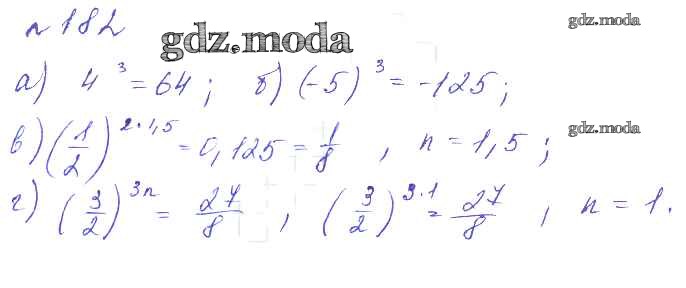 № 182
gdz.moda
gdz.moda
а) 4³ = 64; б) (-5)³ = -125;
в) (1/2)^2·1,5 = 0,125 = 1/8, n = 1,5;
gdz.moda
г) (3/2)^3n = 27/8, (3/2)^3·1 = 27/8, n = 1.